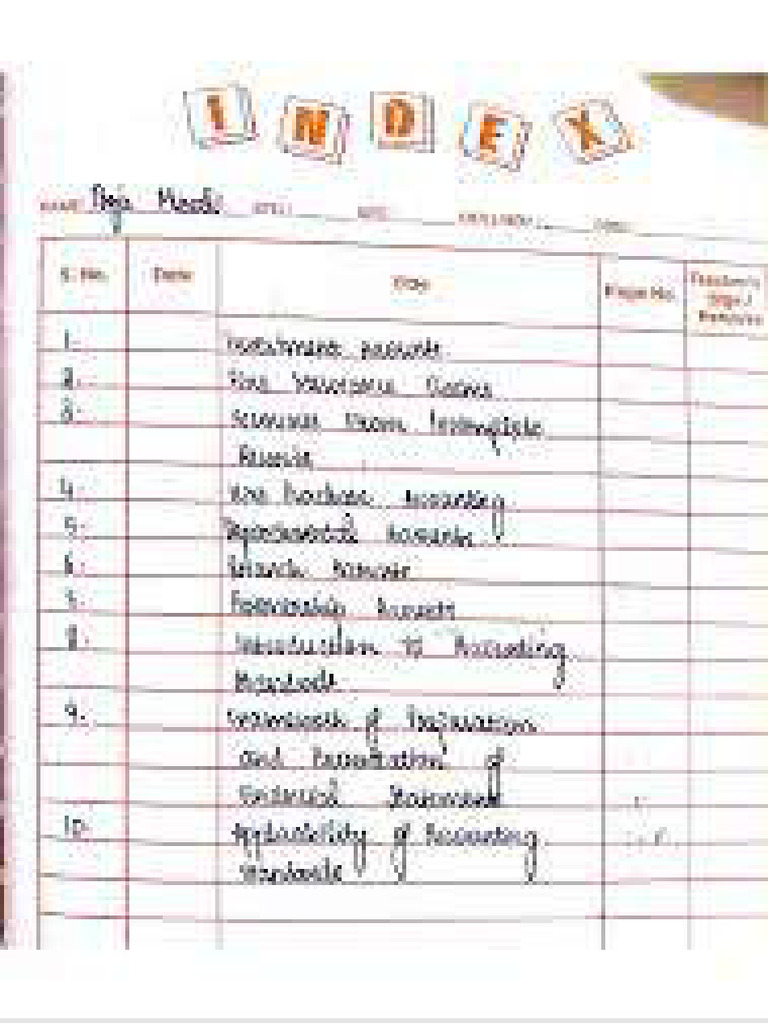 INDEX
NAME: STD.: SEC.: ROLL NO.:
S. No. Date Title Page No. Teacher's
Sign /
Remarks
1. Investment Accounts
2. Fire Insurance Claims
3. Accounts From Incomplete
Records
4. Hire Purchase Accounting
5. Departmental Accounts
6. Branch Accounts
7. Partnership Accounts
8. Introduction to Accounting
Standards
9. Framework of Preparation
and Presentation of
Financial Statements
10. Applicability of Accounting
Standards